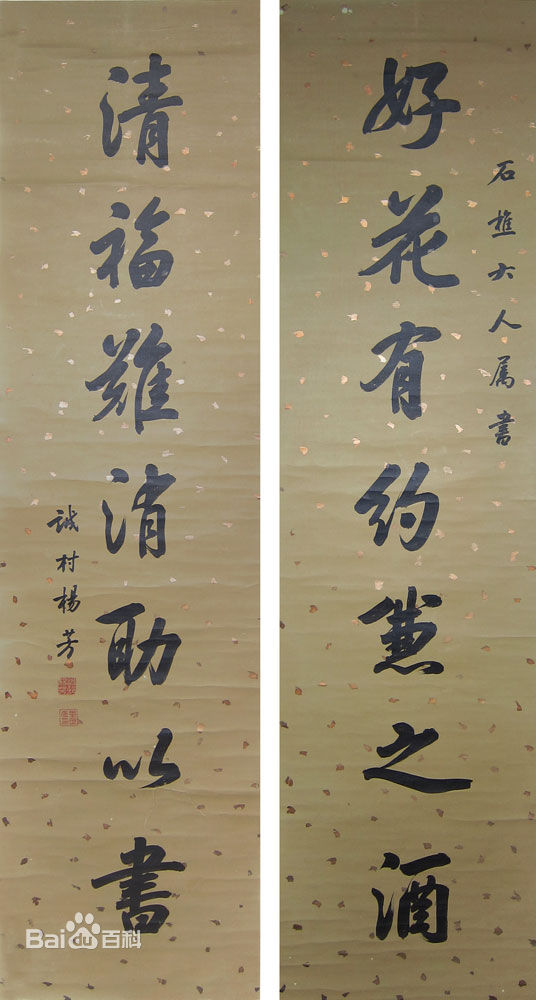 石樵大人属書
好花有約兼之酒
清福難消助以書
誠村楊芳
Bai du 百科